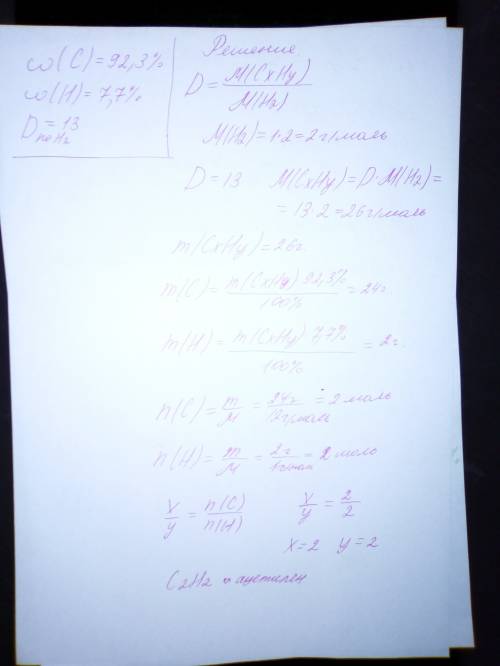 ω(C) = 92,3%
ω(H) = 7,7%
D по H₂ = 13
Решение.
D = M(CxHy) / M(H₂)
M(H₂) = 1·2 = 2 г/моль
D = 13 M(CxHy) = D·M(H₂) =
= 13·2 = 26 г/моль
m(CxHy) = 26 г.
m(C) = m(CxHy) 92,3% / 100% = 24 г.
m(H) = m(CxHy) 7,7% / 100% = 2 г.
n(C) = m/M = 24 г / 12 г/моль = 2 моль
n(H) = m/M = 2 г / 1 г/моль = 2 моль
x/y = n(C)/n(H) x/y = 2/2
x = 2 y = 2
C₂H₂ - ацетилен